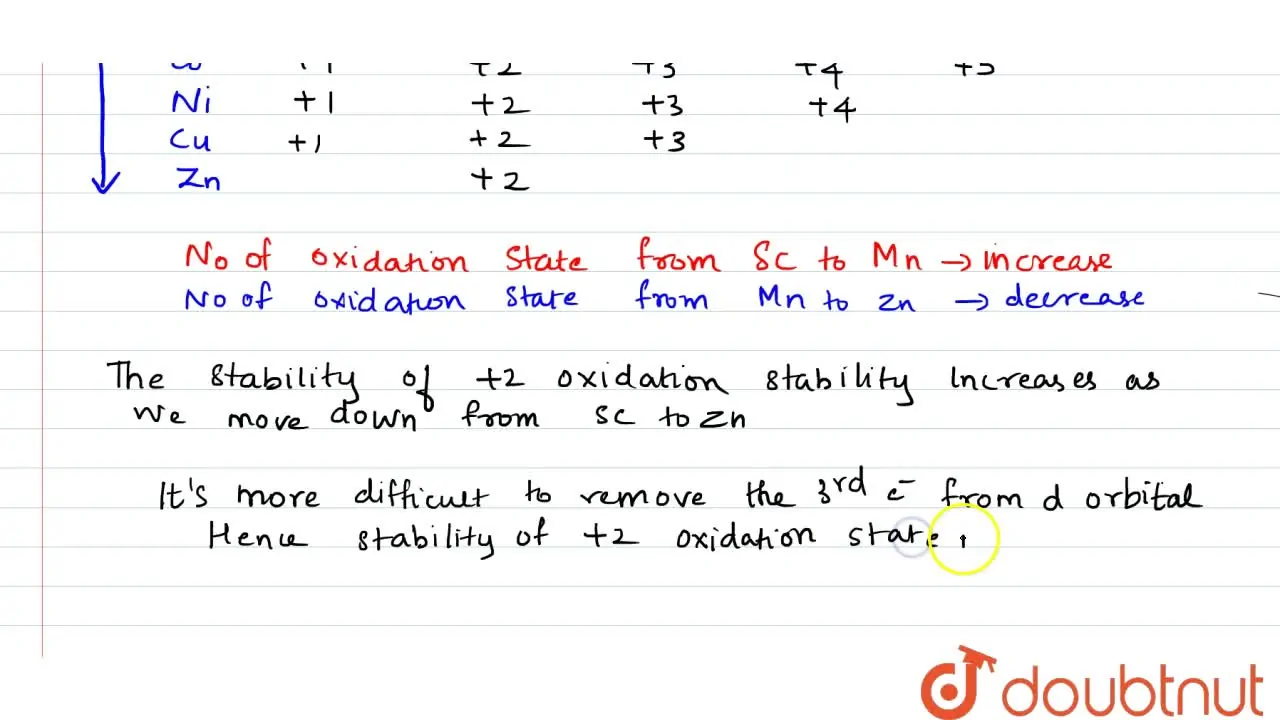 +1 +2 +3 +4 +5
Ni +1 +2 +3 +4
Cu +1 +2 +3
Zn +2
No of oxidation state from Sc to Mn → increase
No of oxidation state from Mn to Zn → decrease
The stability of +2 oxidation stability increases as
we move down from Sc to Zn
It's more difficult to remove the 3rd e⁻ from d orbital
Hence stability of +2 oxidation state
doubtnut